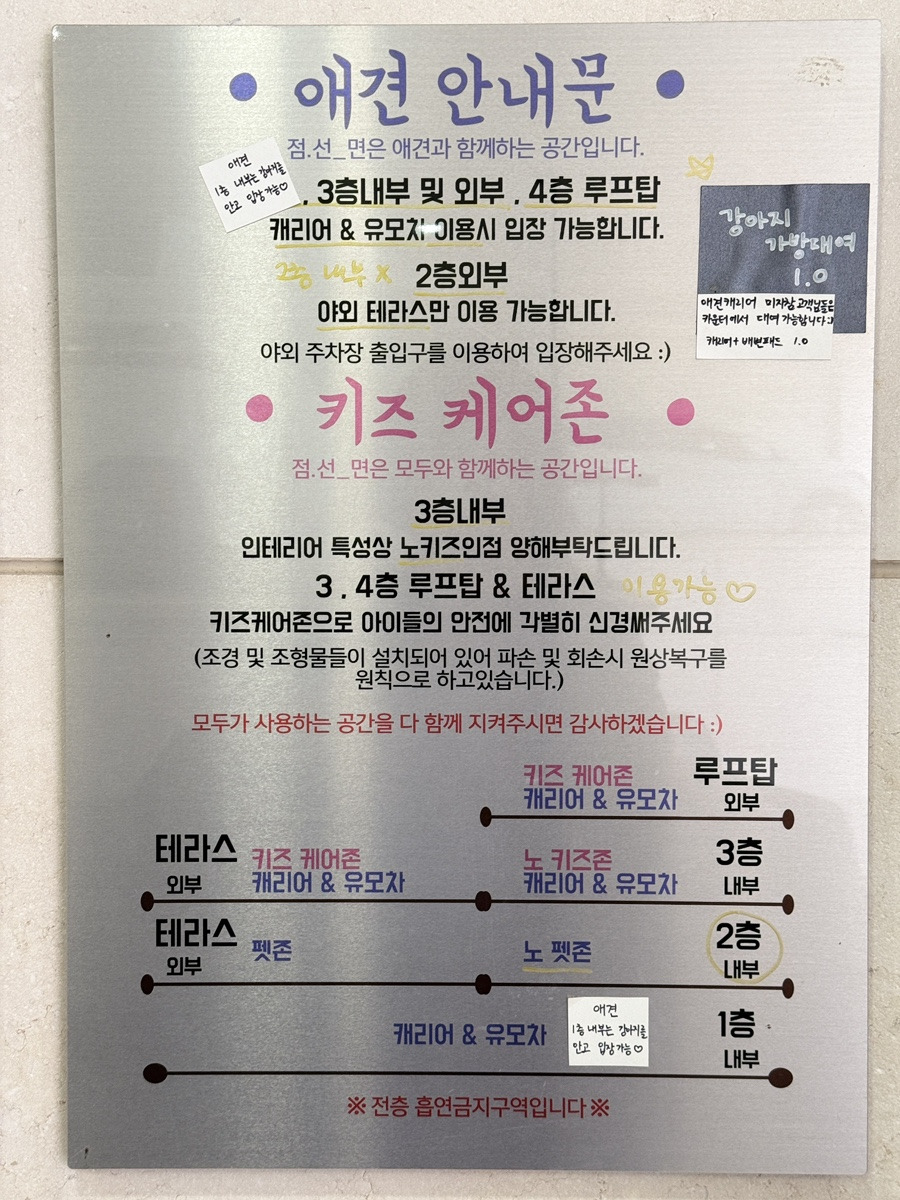 애견 안내문
점.선_면은 애견과 함께하는 공간입니다.
애견
1층 내부는 강아지를
안고 입장 가능♡
, 3층내부 및 외부 , 4층 루프탑
캐리어 & 유모차 이용시 입장 가능합니다.
강아지
가방대여
1.0
애견캐리어 미지참 고객님들은
카운터에서 대여 가능합니다:)
캐리어+배변패드 1.0
2층 내부 X 2층외부
야외 테라스만 이용 가능합니다.
야외 주차장 출입구를 이용하여 입장해주세요 :)
키즈 케어존
점.선_면은 모두와 함께하는 공간입니다.
3층내부
인테리어 특성상 노키즈인점 양해부탁드립니다.
3 , 4층 루프탑 & 테라스 이용가능♡
키즈케어존으로 아이들의 안전에 각별히 신경써주세요
(조경 및 조형물들이 설치되어 있어 파손 및 회손시 원상복구를
원칙으로 하고있습니다.)
모두가 사용하는 공간을 다 함께 지켜주시면 감사하겠습니다 :)
키즈 케어존 루프탑
캐리어 & 유모차 외부
테라스 키즈 케어존 노 키즈존 3층
외부 캐리어 & 유모차 캐리어 & 유모차 내부
테라스 펫존 노 펫존 2층
외부 내부
캐리어 & 유모차 1층
내부
애견
1층 내부는 강아지를
안고 입장가능♡
※ 전층 흡연금지구역입니다 ※